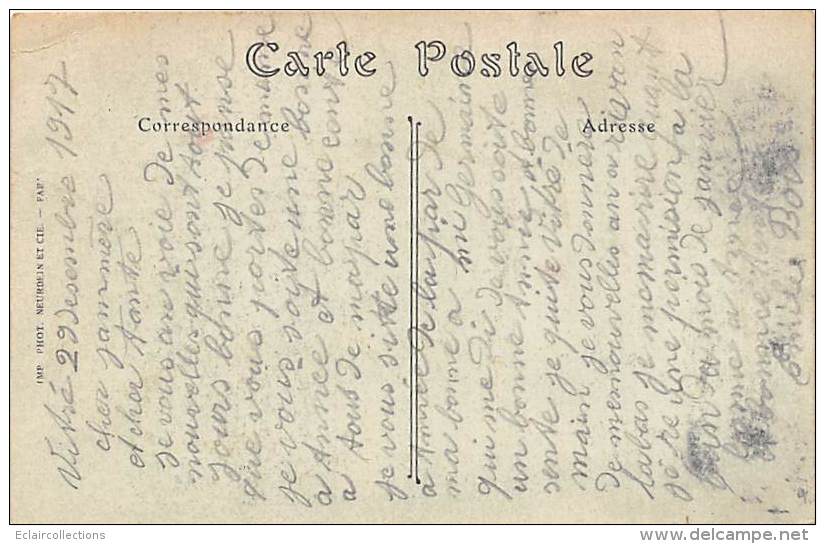 Carte Postale
Correspondance
Adresse
IMP. PHOT. NEURDEIN ET CIE. — PAR
Vitré 29 desembre 1917
cher
et cher tante
je vous anvoie de mes
nouvelles qui sont tout
jours bonne je pense
que vous portes de meme
je vous soite une bonne
a Année et bonne
a tous de ma par
je vous site une bonne
a Année de la par de
ma bonne a mi Germaine
qui me di de vous soite
un bonne Année et bonne
sente je quite Vitré de
main je vous donnere
de mennouvelles an arivan
labas je
jé re une permision a la
fin du mois de janvier
Emile
Eclaircollections
www.delcampe.net